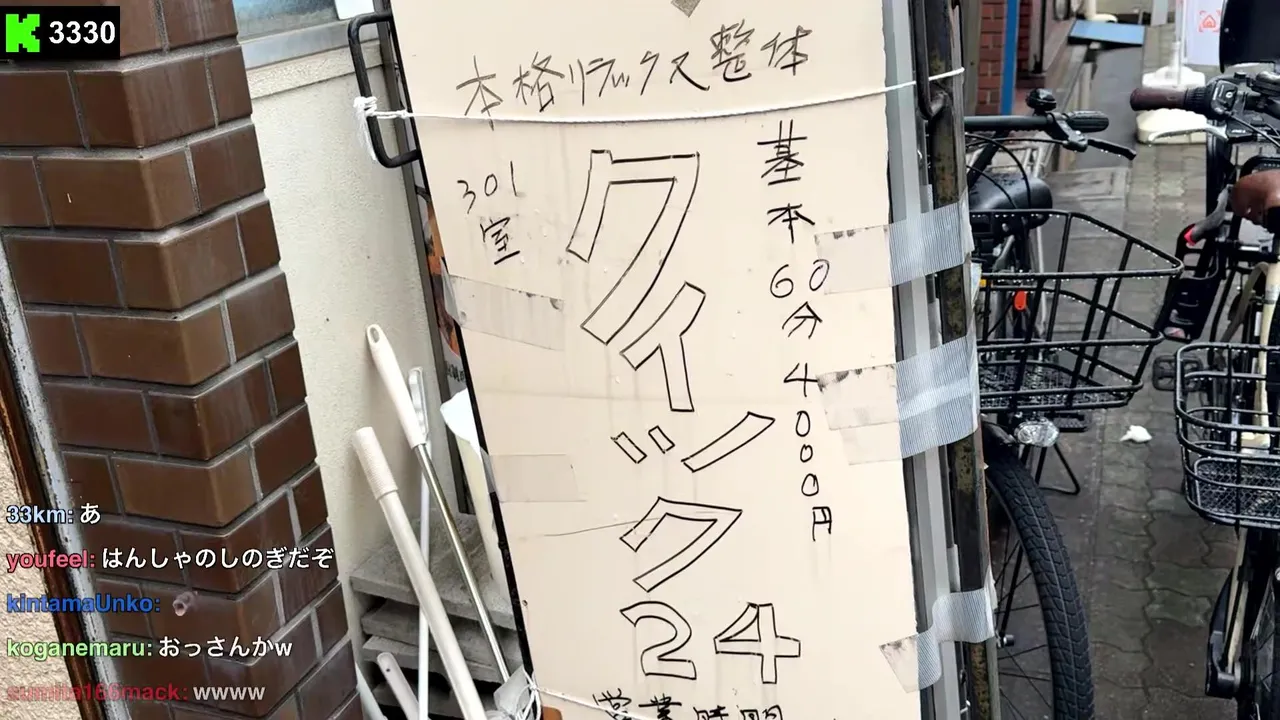 K 3330
本格リラックス整体
301
室
クイック
24
基本60分4000円
営業時間
33km: あ
youfeel: はんしゃのしのぎだぞ
kintamaUnko:
koganemaru: おっさんかw
sumita166mack: wwww